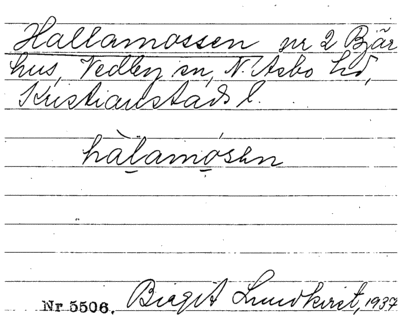 Hallamossen nr 2 Bjär
hus, Vedby sn, N. Åsbo hd,
Kristianstads l.
hàlamósen
Nr 5506. Birgit Lundkvist, 1937